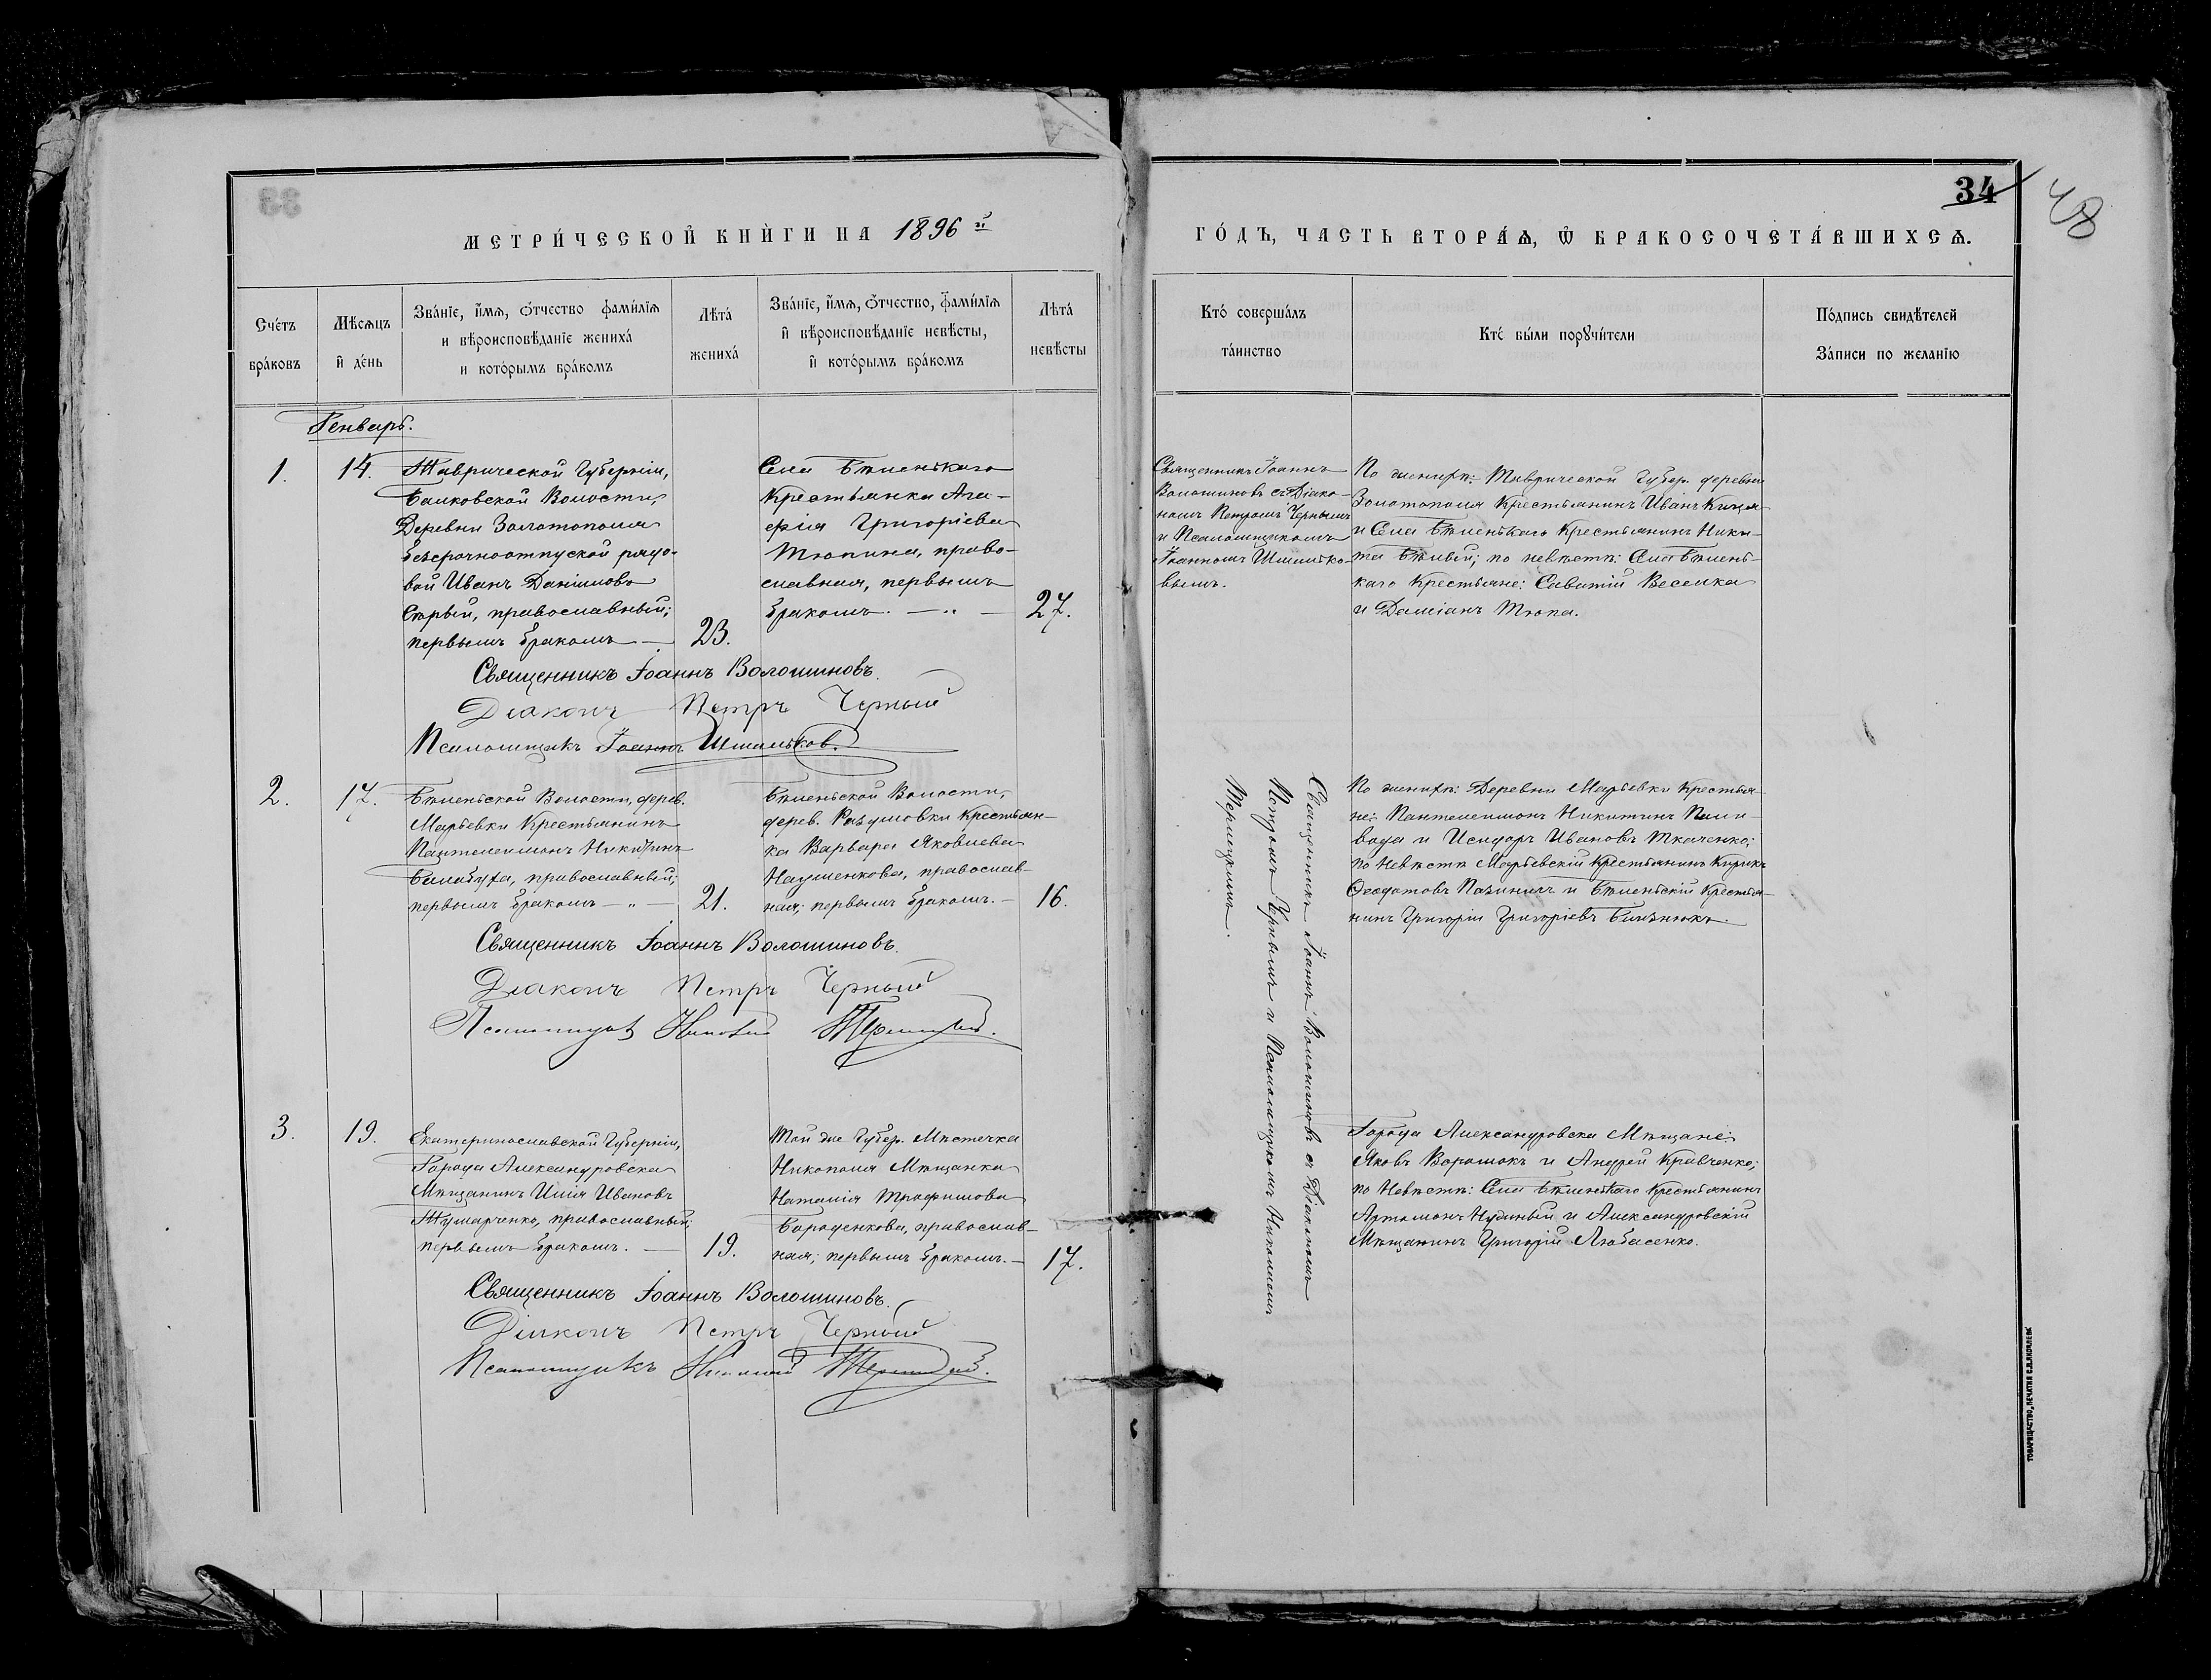 34
48
МЕТРИ́ЧЕСКОЙ КНИ́ГИ НА 1896 й
ГО́ДЪ, ЧАСТЬ ВТОРА́Ѧ, Ѽ БРАКОСОЧЕТА́ВШИХСѦ.
Сче́тъ
бра́ковъ
Мѣ́сѧцъ
и҆ де́нь
Зва́нїе, и҆́мѧ, ѻ҆́тчество фами́лїѧ
и вѣроисповѣ́данїе жениха́
и кото́рымъ бра́комъ
Лѣта́
жениха́
Зва́нїе, и҆́мѧ, ѻ҆́тчество, фами́лїѧ
и҆ вѣроисповѣ́данїе невѣ́сты,
и҆ кото́рымъ бра́комъ
Лѣта́
невѣ́сты
Кто́ соверша́лъ
та́инство
Кто́ бы́ли порꙋчи́тели
По́дпись свидѣ́телей
За́писи по желанїю
Генварь.
1.
14.
Таврической Губерніи,
Балковской Волости,
Деревни Золотополя
безсрочноотпуской рядо-
вой Иванъ Даніиловъ
Сѣрый, православный;
первымъ бракомъ —
23.
Села Бѣленькаго
Крестьянка Ага-
фія Григоріева
Тюпина, право-
славная, первымъ
бракомъ. — „ —
27.
Священникъ Іоаннъ
Волошиновъ съ Діако-
номъ Петромъ Чернымъ
и Псаломщикомъ
Іоанномъ Шишко-
вымъ.
По женихѣ: Таврической Губер. деревни
Золотополя Крестьянинъ Иванъ
и Села Бѣленькаго Крестьянинъ Ники-
та Бѣлый; по невѣстѣ: Села Бѣлень-
каго Крестьяне: Саватій Веселка
и Даміанъ Тюпа.
Священникъ Іоаннъ Волошиновъ.
Діаконъ Петръ Черный
Псаломщикъ Іоаннъ
2.
17.
Бѣленьской Волости, дерев.
Марьевки Крестьянинъ
Пантелеимонъ Никитинъ
Балабуха, православный;
первымъ бракомъ — „ —
21.
Бѣленьской Волости,
дерев. Разумовки Крестьян-
ка Варвара Яковлева
Науменкова, православ-
ная; первымъ бракомъ. —
16.
Священникъ Іоаннъ Волошиновъ съ Діакономъ
Петромъ Чернымъ и Псаломщикомъ Николаемъ
По женихѣ: Деревни Марьевки Крестья-
не: Пантелеимонъ Никитинъ Пали-
вода и Исидоръ Ивановъ Ткаченко;
по Невѣстѣ Марьевскій Крестьянинъ Кирикъ
Ѳеодотовъ и Бѣленьскій Крестья-
нинъ Григорій Григоріевъ Близнюкъ.
Священникъ Іоаннъ Волошиновъ.
Діаконъ Петръ Черный
Псаломщикъ Николай
3.
19.
Екатеринославской Губерніи,
Города Александровска
Мѣщанинъ Илія Ивановъ
православный;
первымъ бракомъ. —
19.
Той же Губер. Мѣстечка
Никополя Мѣщанка
Наталія Трофимова
Бороденкова, православ-
ная; первымъ бракомъ. —
17.
Города Александровска Мѣщане:
Яковъ и Андрей Кравченко;
по Невѣстѣ: Села Бѣленькаго Крестьянинъ
Артамонъ Нудный и Александровскій
Мѣщанинъ Григорій Любасенко.
Священникъ Іоаннъ Волошиновъ.
Діаконъ Петръ Черный
Псаломщикъ Николай